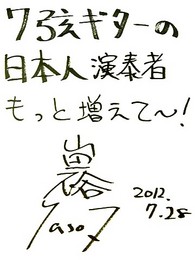 7弦ギターの
日本人演奏者
もっと増えて〜!
2012.
7.28